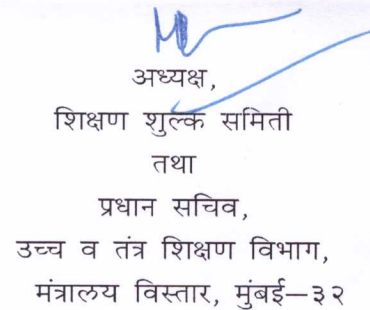 अध्यक्ष,
शिक्षण शुल्क समिती
तथा
प्रधान सचिव,
उच्च व तंत्र शिक्षण विभाग,
मंत्रालय विस्तार, मुंबई–३२